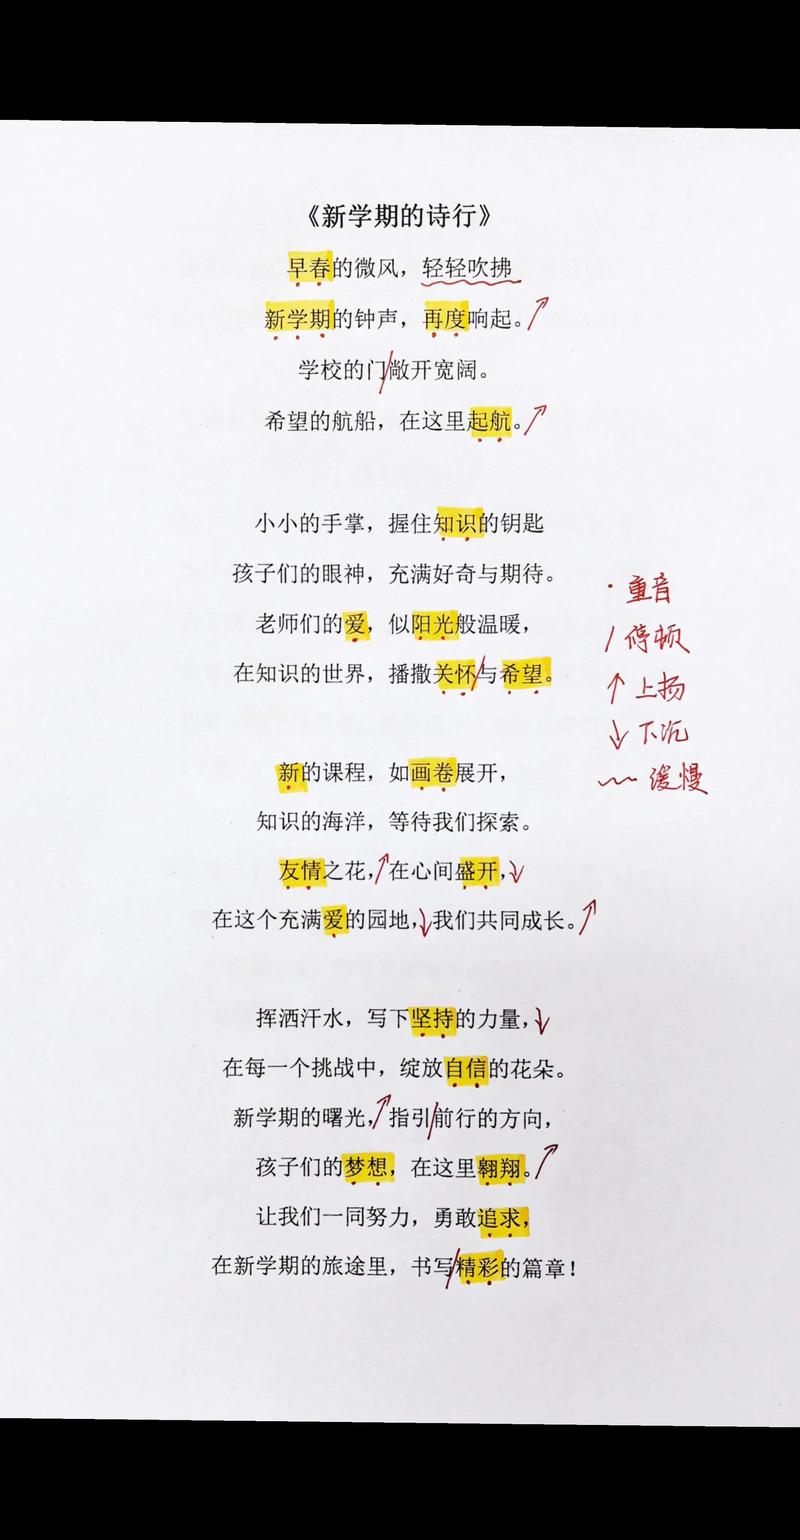 《新学期的诗行》
早春的微风，轻轻吹拂
新学期的钟声，再度响起。
学校的门/敞开宽阔。
希望的航船，在这里起航。
小小的手掌，握住知识的钥匙
孩子们的眼神，充满好奇与期待。
老师们的爱，似阳光般温暖，
在知识的世界，播撒关怀/与希望。
新的课程，如画卷展开，
知识的海洋，等待我们探索。
友情之花，在心间盛开，
在这个充满爱的园地，我们共同成长。
挥洒汗水，写下坚持的力量，
在每一个挑战中，绽放自信的花朵。
新学期的曙光，指引/前行的方向，
孩子们的梦想，在这里翱翔。
让我们一同努力，勇敢追求，
在新学期的旅途里，书写/精彩的篇章！
· 重音
/ 停顿
↑ 上扬
↓ 下沉
﹏ 缓慢